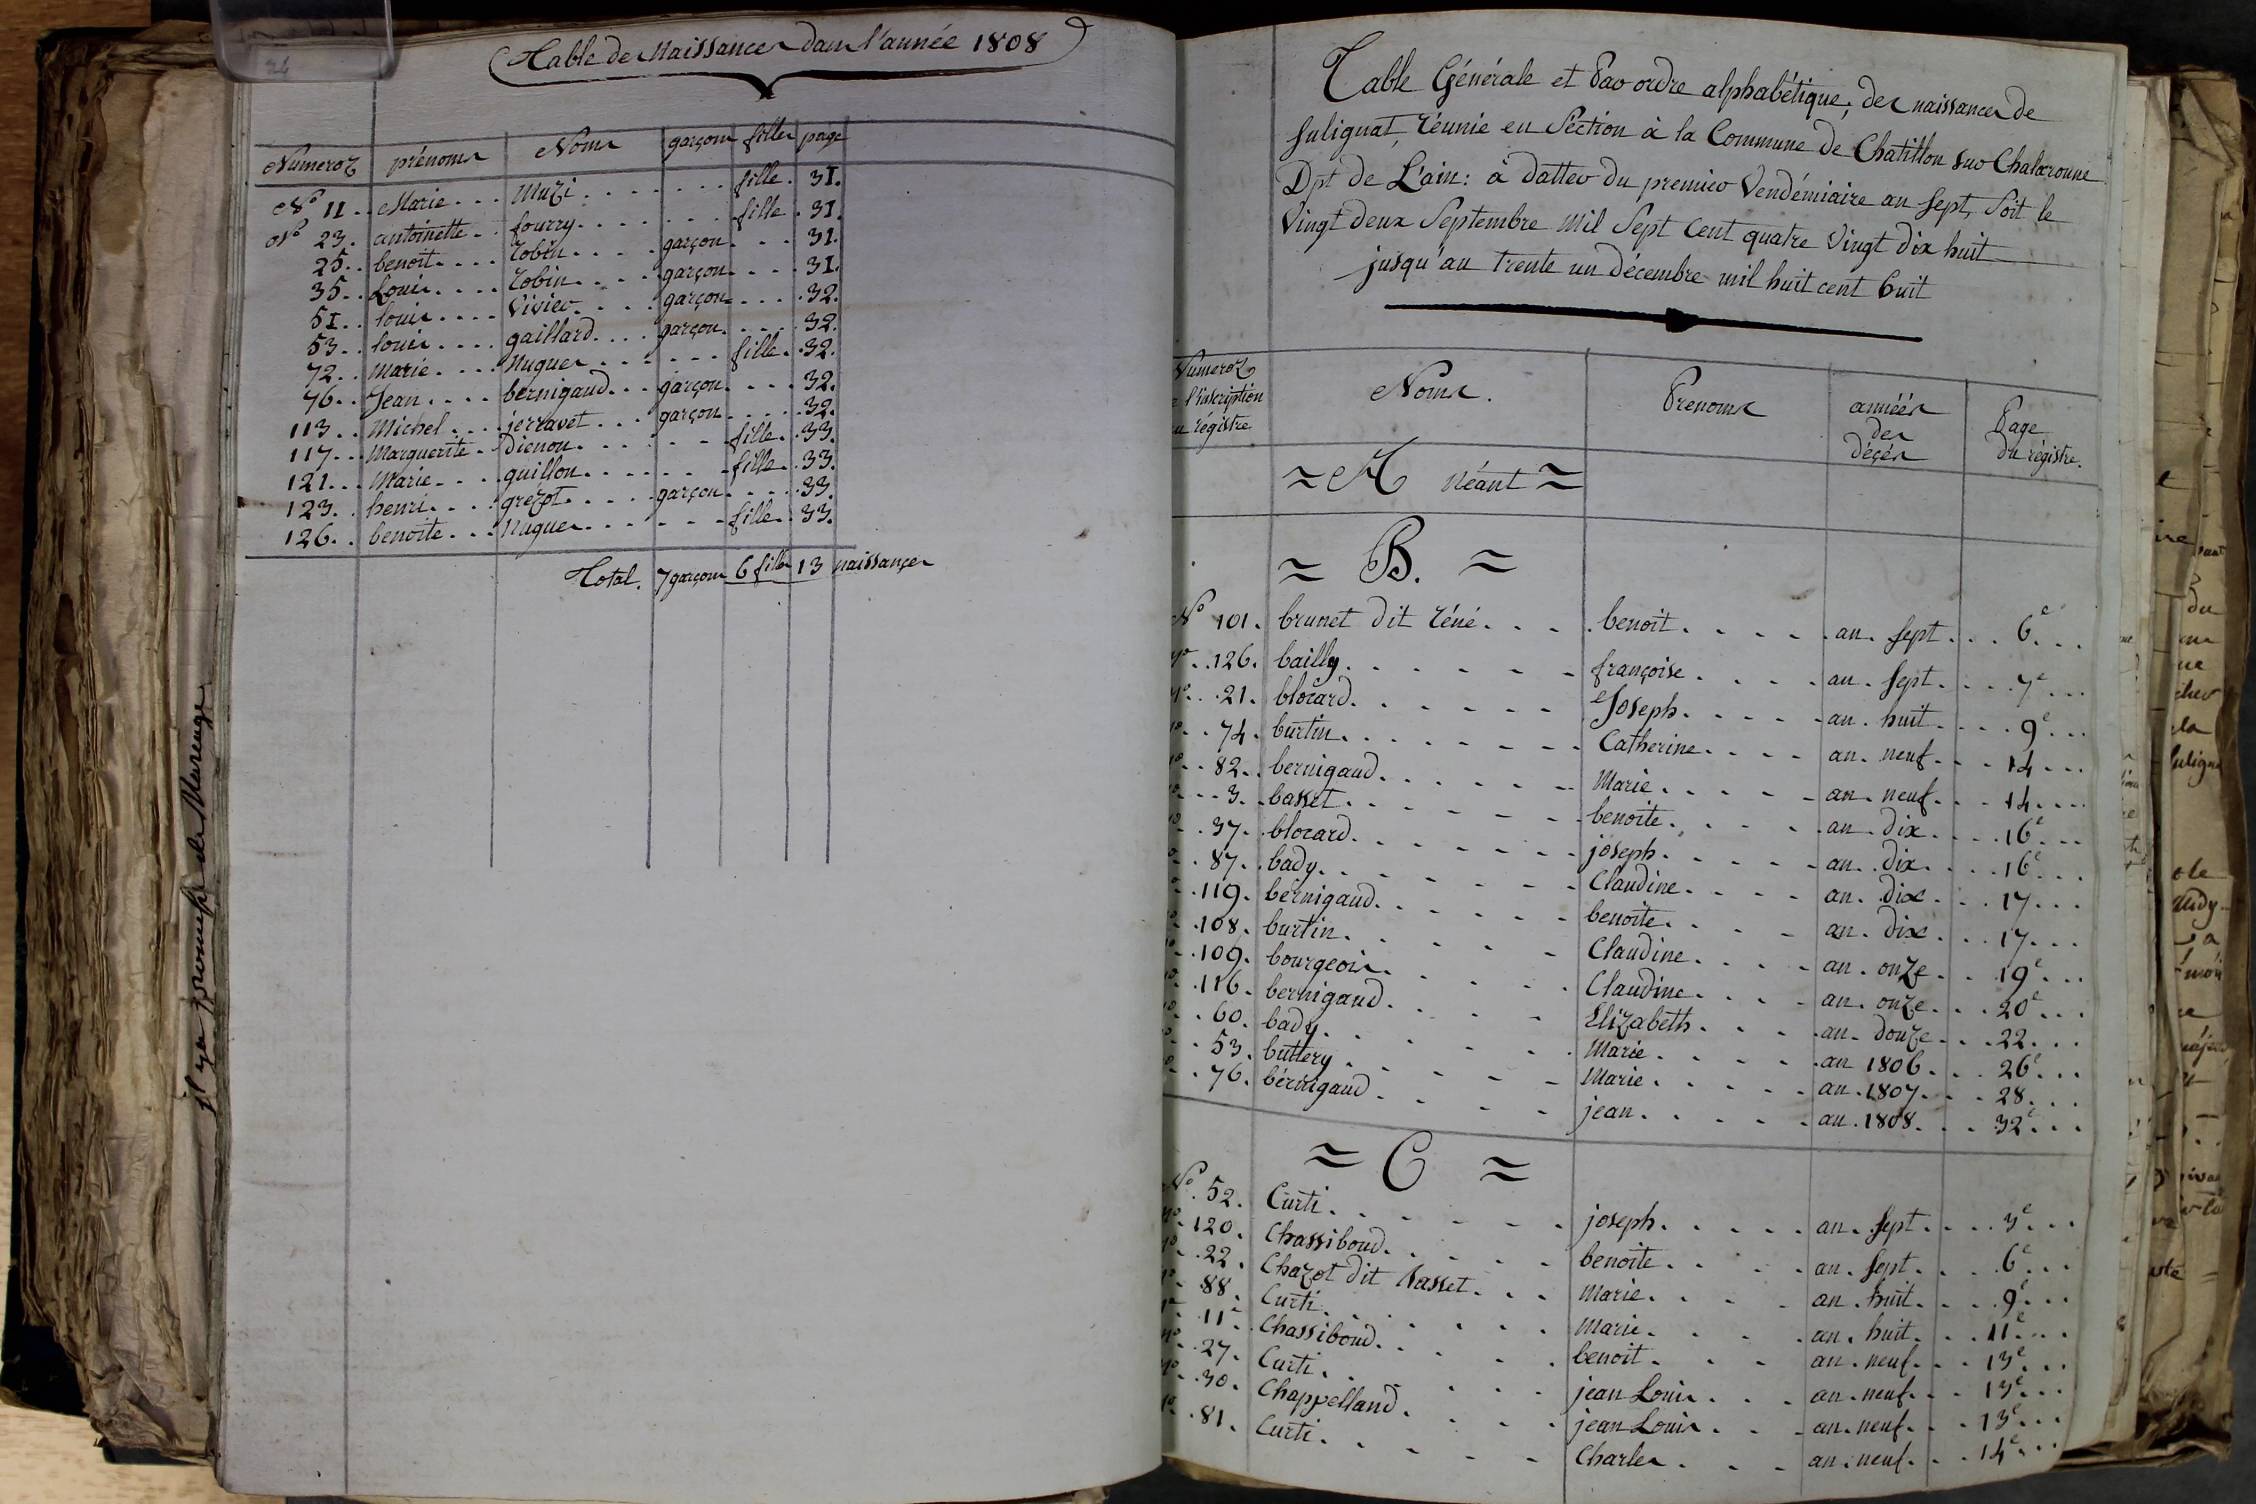 24
Table de Naissances dans l'année 1808
Numeros prénoms Noms garçons filles page
N° 11 .. Marie ... Muzi ....... fille . 31.
N° 23. antoinette .. fourry ....... fille . 31.
25 .. benoit .... robin .... garçon ... 31.
35 .. Louis .... robin .... garçon ... 31.
51 .. louis .... Vivier .... garçon ... 32.
53 .. louis .... gaillard .... garçon .... 32.
72 .. Marie .... Nugues ...... fille . 32.
76 .. Jean .... bernigaud ... garçon .... 32.
113 .. Michel ... jerravet ... garçon .... 32.
117 .. Marguerite . Dienon ...... fille . 33.
121 ... Marie .... guillon ...... fille . 33.
123 .. henri .... grézot ..... garçon .... 33.
126 .. benoite ... Nugues ...... fille . 33.
Total. 7 garçons 6 filles 13 naissances
il y a promesse de Marenge
Table Générale et Par ordre alphabétique, des naissances de
Sulignat, réunie en Séction à la Commune de Chatillon sur Chalaronne
Dpt de L'ain: à datter du premier Vendémiaire an Sept, Soit le
Vingt deux Septembre Mil Sept Cent quatre Vingt dix huit
jusqu'au trente un décembre mil huit cent huit
Numeros
l'inscription
régistre
Noms.
Prenoms
années
des
décès
Page
du régistre.
A Néant
B.
N° 101. brunet dit réné ... benoit .... an sept ... 6e ...
n° .. 126. bailly ...... françoise .... an sept ... 7e ...
n° .. 21. blocard ...... Joseph .... an huit .... 9e ...
74. burtin ....... Catherine .... an neuf ... 14 ...
82. bernigaud ...... Marie ..... an neuf ... 14 ....
3. basset ...... benoite ..... an dix .... 16e ...
37. blocard ....... joseph ..... an dix .... 16e ...
87. bady ....... Claudine .... an dix ... 17 ...
119. bernigaud ...... benoite .... an dix ... 17 ...
108. burtin ..... Claudine .... an onze .. 19e ...
109. bourgeois ..... Claudine .... an onze ... 20e ...
116. bernigaud .... Elizabeth .... an douze ... 22 ...
60. bady ...... Marie ..... an 1806 ... 26e ...
53. buttery ..... Marie ..... an 1807 ... 28 ...
76. bérnigaud .... jean ..... an 1808 ... 32e ...
C
N° 52. Curti ...... joseph ..... an sept .... 3e ...
120. Chassiboud ..... benoite .... an sept ... 6e ...
22. Chazot dit Basset ... Marie .... an huit .... 9e ...
88. Curti ...... Marie .... an huit .... 11e ...
11e. Chassiboud ..... benoit .... an neuf ... 13e ...
27. Curti ..... jean Louis ... an neuf ... 13e ...
30. Chappelland .... jean Louis ... an neuf ... 13e ...
81. Curti ..... Charles ... an neuf ... 14e ...